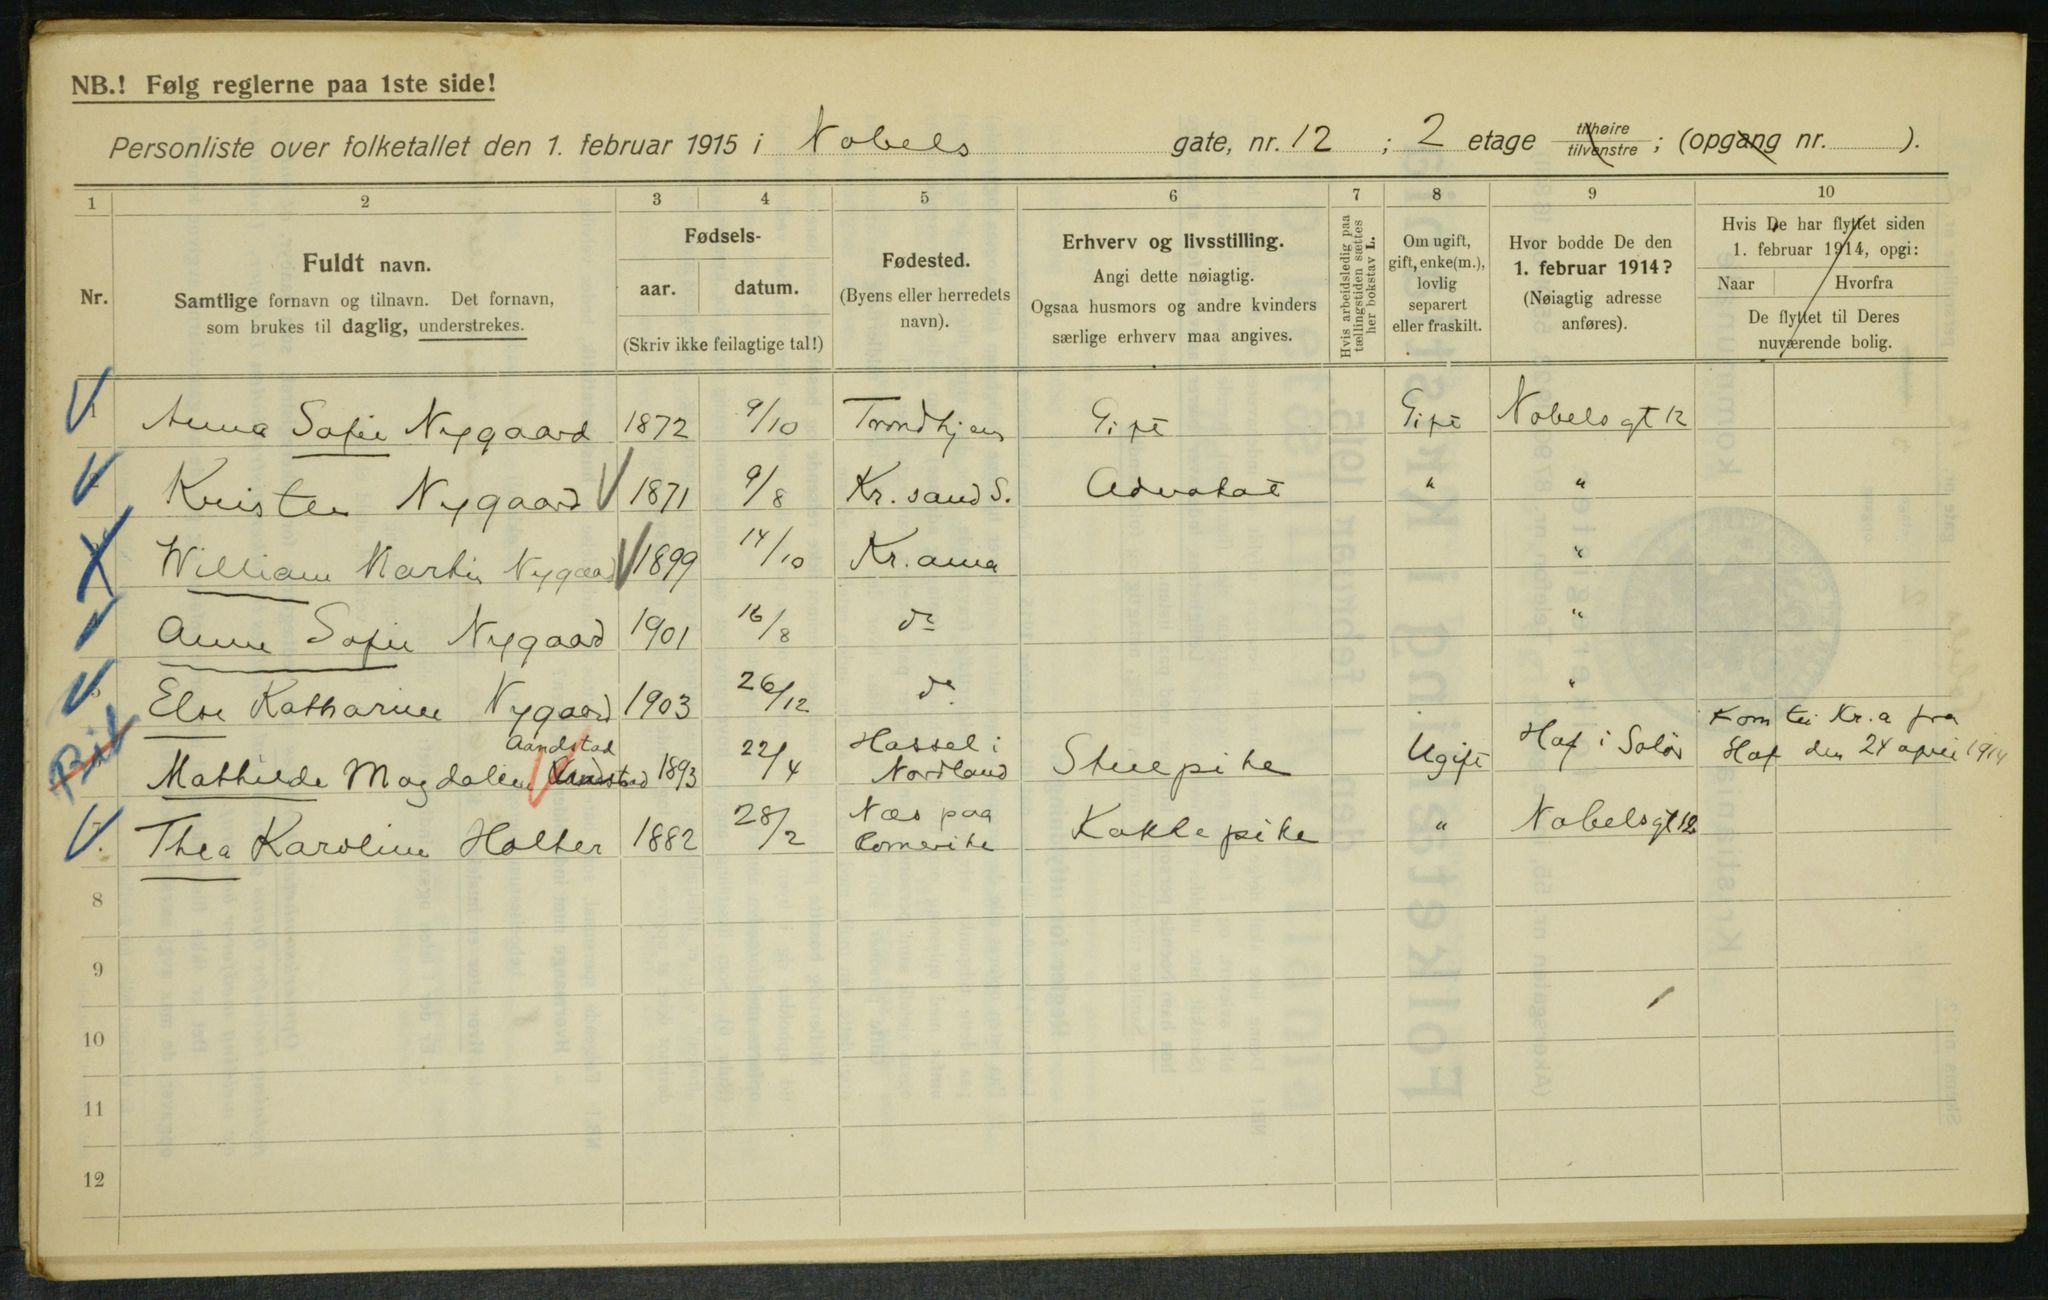 NB.! Følg reglerne paa 1ste side!
Personliste over folketallet den 1. februar 1915 i Nobels gate, nr. 12 ; 2 etage tilhøire tilvenstre ; (opgang nr. ).
1 2 3 4 5 6 7 8 9 10
Nr.
Fuldt navn.
Samtlige fornavn og tilnavn. Det fornavn,
som brukes til daglig, understrekes.
Fødsels-
aar. datum.
(Skriv ikke feilagtige tal!)
Fødested.
(Byens eller herredets
navn).
Erhverv og livsstilling.
Angi dette nøiagtig.
Ogsaa husmors og andre kvinders
særlige erhverv maa angives.
Hvis arbeidsledig paa
tællingstiden sættes
her bokstav L.
Om ugift,
gift, enke(m.),
lovlig
separert
eller fraskilt.
Hvor bodde De den
1. februar 1914?
(Nøiagtig adresse
anføres).
Hvis De har flyttet siden
1. februar 1914, opgi:
Naar Hvorfra
De flyttet til Deres
nuværende bolig.
1 Anna Sofie Nygaard 1872 9/10 Trondhjem Gift Gift Nobelsgt 12
Kristen Nygaard 1871 9/8 Kr.sand S. Advokat " "
William Martin Nygaard 1899 14/10 Kr.ania "
Anne Sofie Nygaard 1901 16/8 do "
5 Else Katharine Nygaard 1903 26/12 do "
Mathilde Magdalene Aandstad 1893 22/4 Hassel i Nordland Stuepike Ugift Hof i Solør Kom til Kr.a fra Hof den 24 april 1914
7 Thea Karoline Holter 1882 28/2 Næs paa Romerike Kokkepike " Nobelsgt 12
8
9
10
11
12